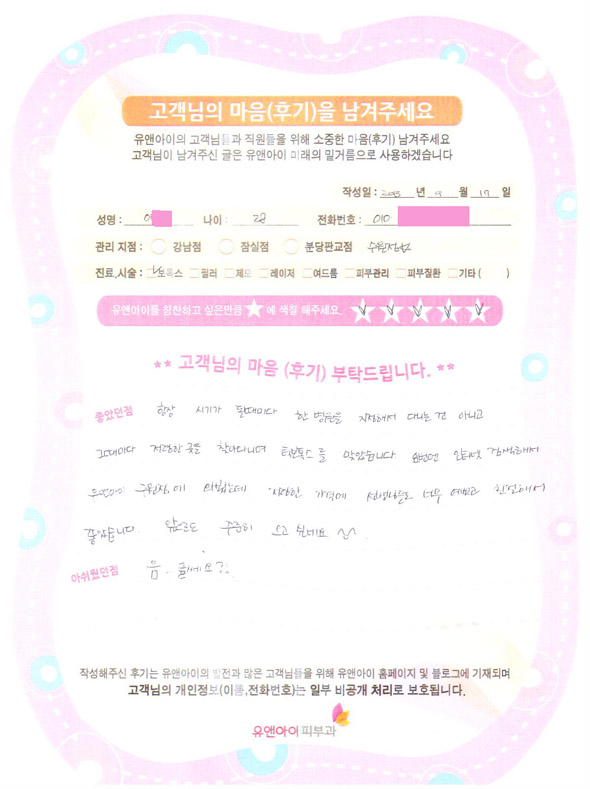 고객님의 마음(후기)을 남겨주세요
유앤아이의 고객님들과 직원들을 위해 소중한 마음(후기) 남겨주세요
고객님이 남겨주신 글은 유앤아이 미래의 밑거름으로 사용하겠습니다
작성일 : 년 9 월 17 일
성명 : 나이 : 28 전화번호 : 010
관리 지점 : 강남점 잠실점 분당판교점 수원점
진료,시술 : 보톡스 필러 제모 레이저 여드름 피부관리 피부질환 기타 ( )
유앤아이를 칭찬하고 싶은만큼 ★에 색칠 해주세요.
** 고객님의 마음 (후기) 부탁드립니다. **
좋았던점 항상 시기가 될때마다 한 병원을 지정해서 다니는 건 아니고
그때마다 저렴한 곳을 찾아다니며 보톡스를 맞았습니다 이번엔 인터넷 검색해서
유앤아이 수원점에 와봤는데 가격에 선생님들도 너무 예쁘고 친절해서
좋았습니다. 앞으로도 꾸준히 오고 싶네요
아쉬웠던점 음.. 글쎄요?
작성해주신 후기는 유앤아이의 발전과 많은 고객님들을 위해 유앤아이 홈페이지 및 블로그에 기재되며
고객님의 개인정보(이름,전화번호)는 일부 비공개 처리로 보호됩니다.
유앤아이 피부과